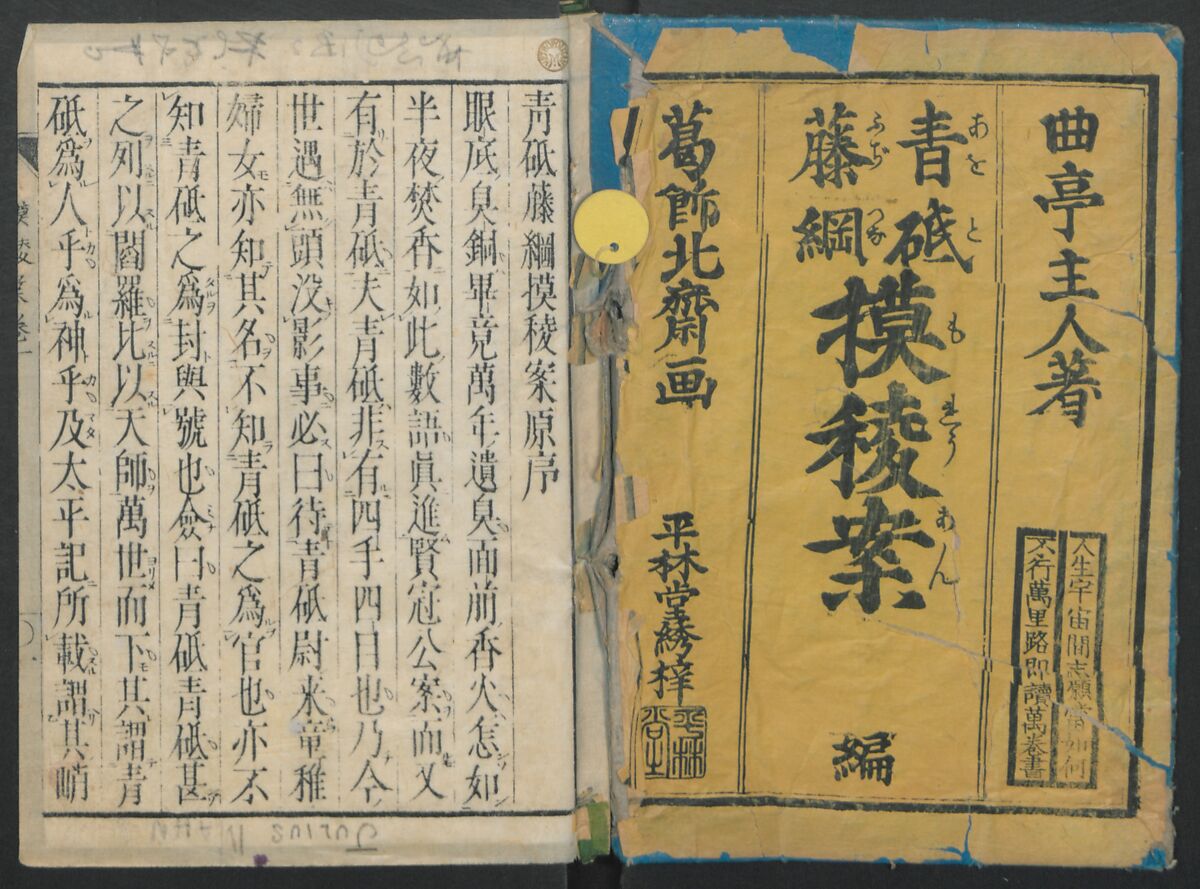 曲亭主人著
人生宇宙間志願當如何
不行萬里路即讀萬卷書
青砥
あをと
藤綱
ふぢつな
摸稜案
もれうあん
編
葛飾北齋画
平林堂綉梓
青砥藤綱摸稜案原序
眼底臭銅畢竟萬年遺臭面前香火怎如
半夜焚香如此數語眞進賢冠公案而又
有於青砥夫青砥非有四手四目也乃今
世遇無頭没影事必曰待青砥尉来童稚
婦女亦知其名不知青砥之爲官也亦不
知青砥之爲封與號也僉曰青砥青砥甚
之列以閻羅比以天師萬世而下其謂青
砥爲人乎爲神乎及太平記所載謂其峭
JULIUS